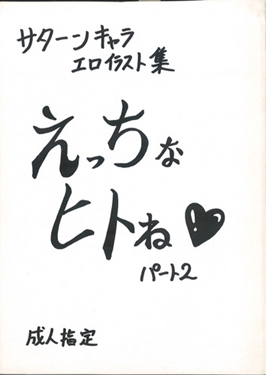 サターンキャラ
エロイラスト集
えっちな
ヒトね♥
パート2
成人指定